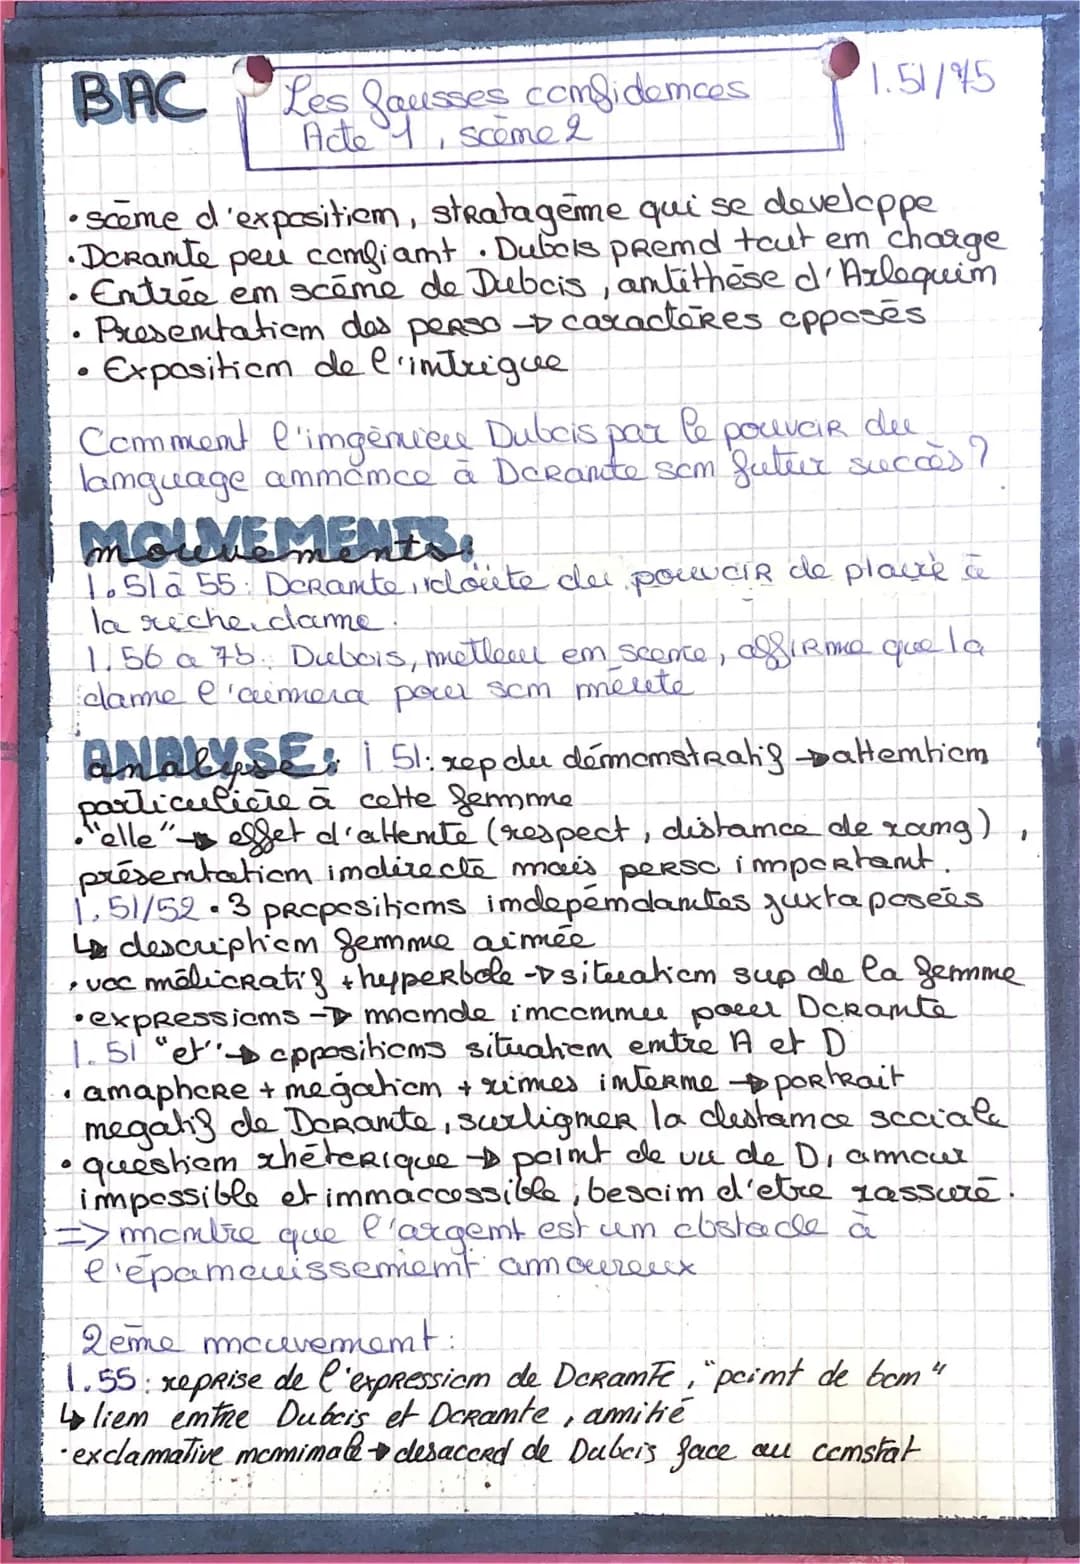 BAC
Les fausses confidences
Acte 1, scène 2
l.51/75
• scène d'exposition, stratagème qui se developpe
• Dorante peu confiant • Dubois prend tout en charge
• Entrée en scène de Dubois, antithèse d'Arlequin
• Presentation des perso → caractères opposés
• Exposition de l'intrigue
Comment l'ingénieu Dubois par le pouvoir du
language annonce à Dorante son futur succès ?
MOUVEMENTS:
mouvements:
l.51 à 55: Dorante, doute du pouvoir de plaire à
la riche dame.
l.56 a 75: Dubois, metteur en scene, affirme que la
dame l'aimera pour son merite
ANALYSE:
analyse: l 51: rep du démonstratif → attention
particulière à cette femme
• "elle" → effet d'attente (respect, distance de rang),
présentation indirecte mais perso important.
l.51/52 • 3 propositions indépendantes juxtaposées
↳ description femme aimée
• voc mélioratif + hyperbole → situation sup de la femme
• expressions → monde inconnu pour Dorante
l.51 "et" → oppositions situation entre A et D
• anaphore + négation + rimes interne → portrait
negatif de Dorante, surligner la distance sociale
• question rhétorique → point de vu de D, amour
impossible et innaccessible, besoin d'etre rassuré.
=> montre que l'argent est un obstacle à
l'épanouissement amoureux
2ème mouvement:
l.55: reprise de l'expression de Dorante, "point de bon"
↳ lien entre Dubois et Dorante, amitié
• exclamative nominale → desaccord de Dubois face au constat